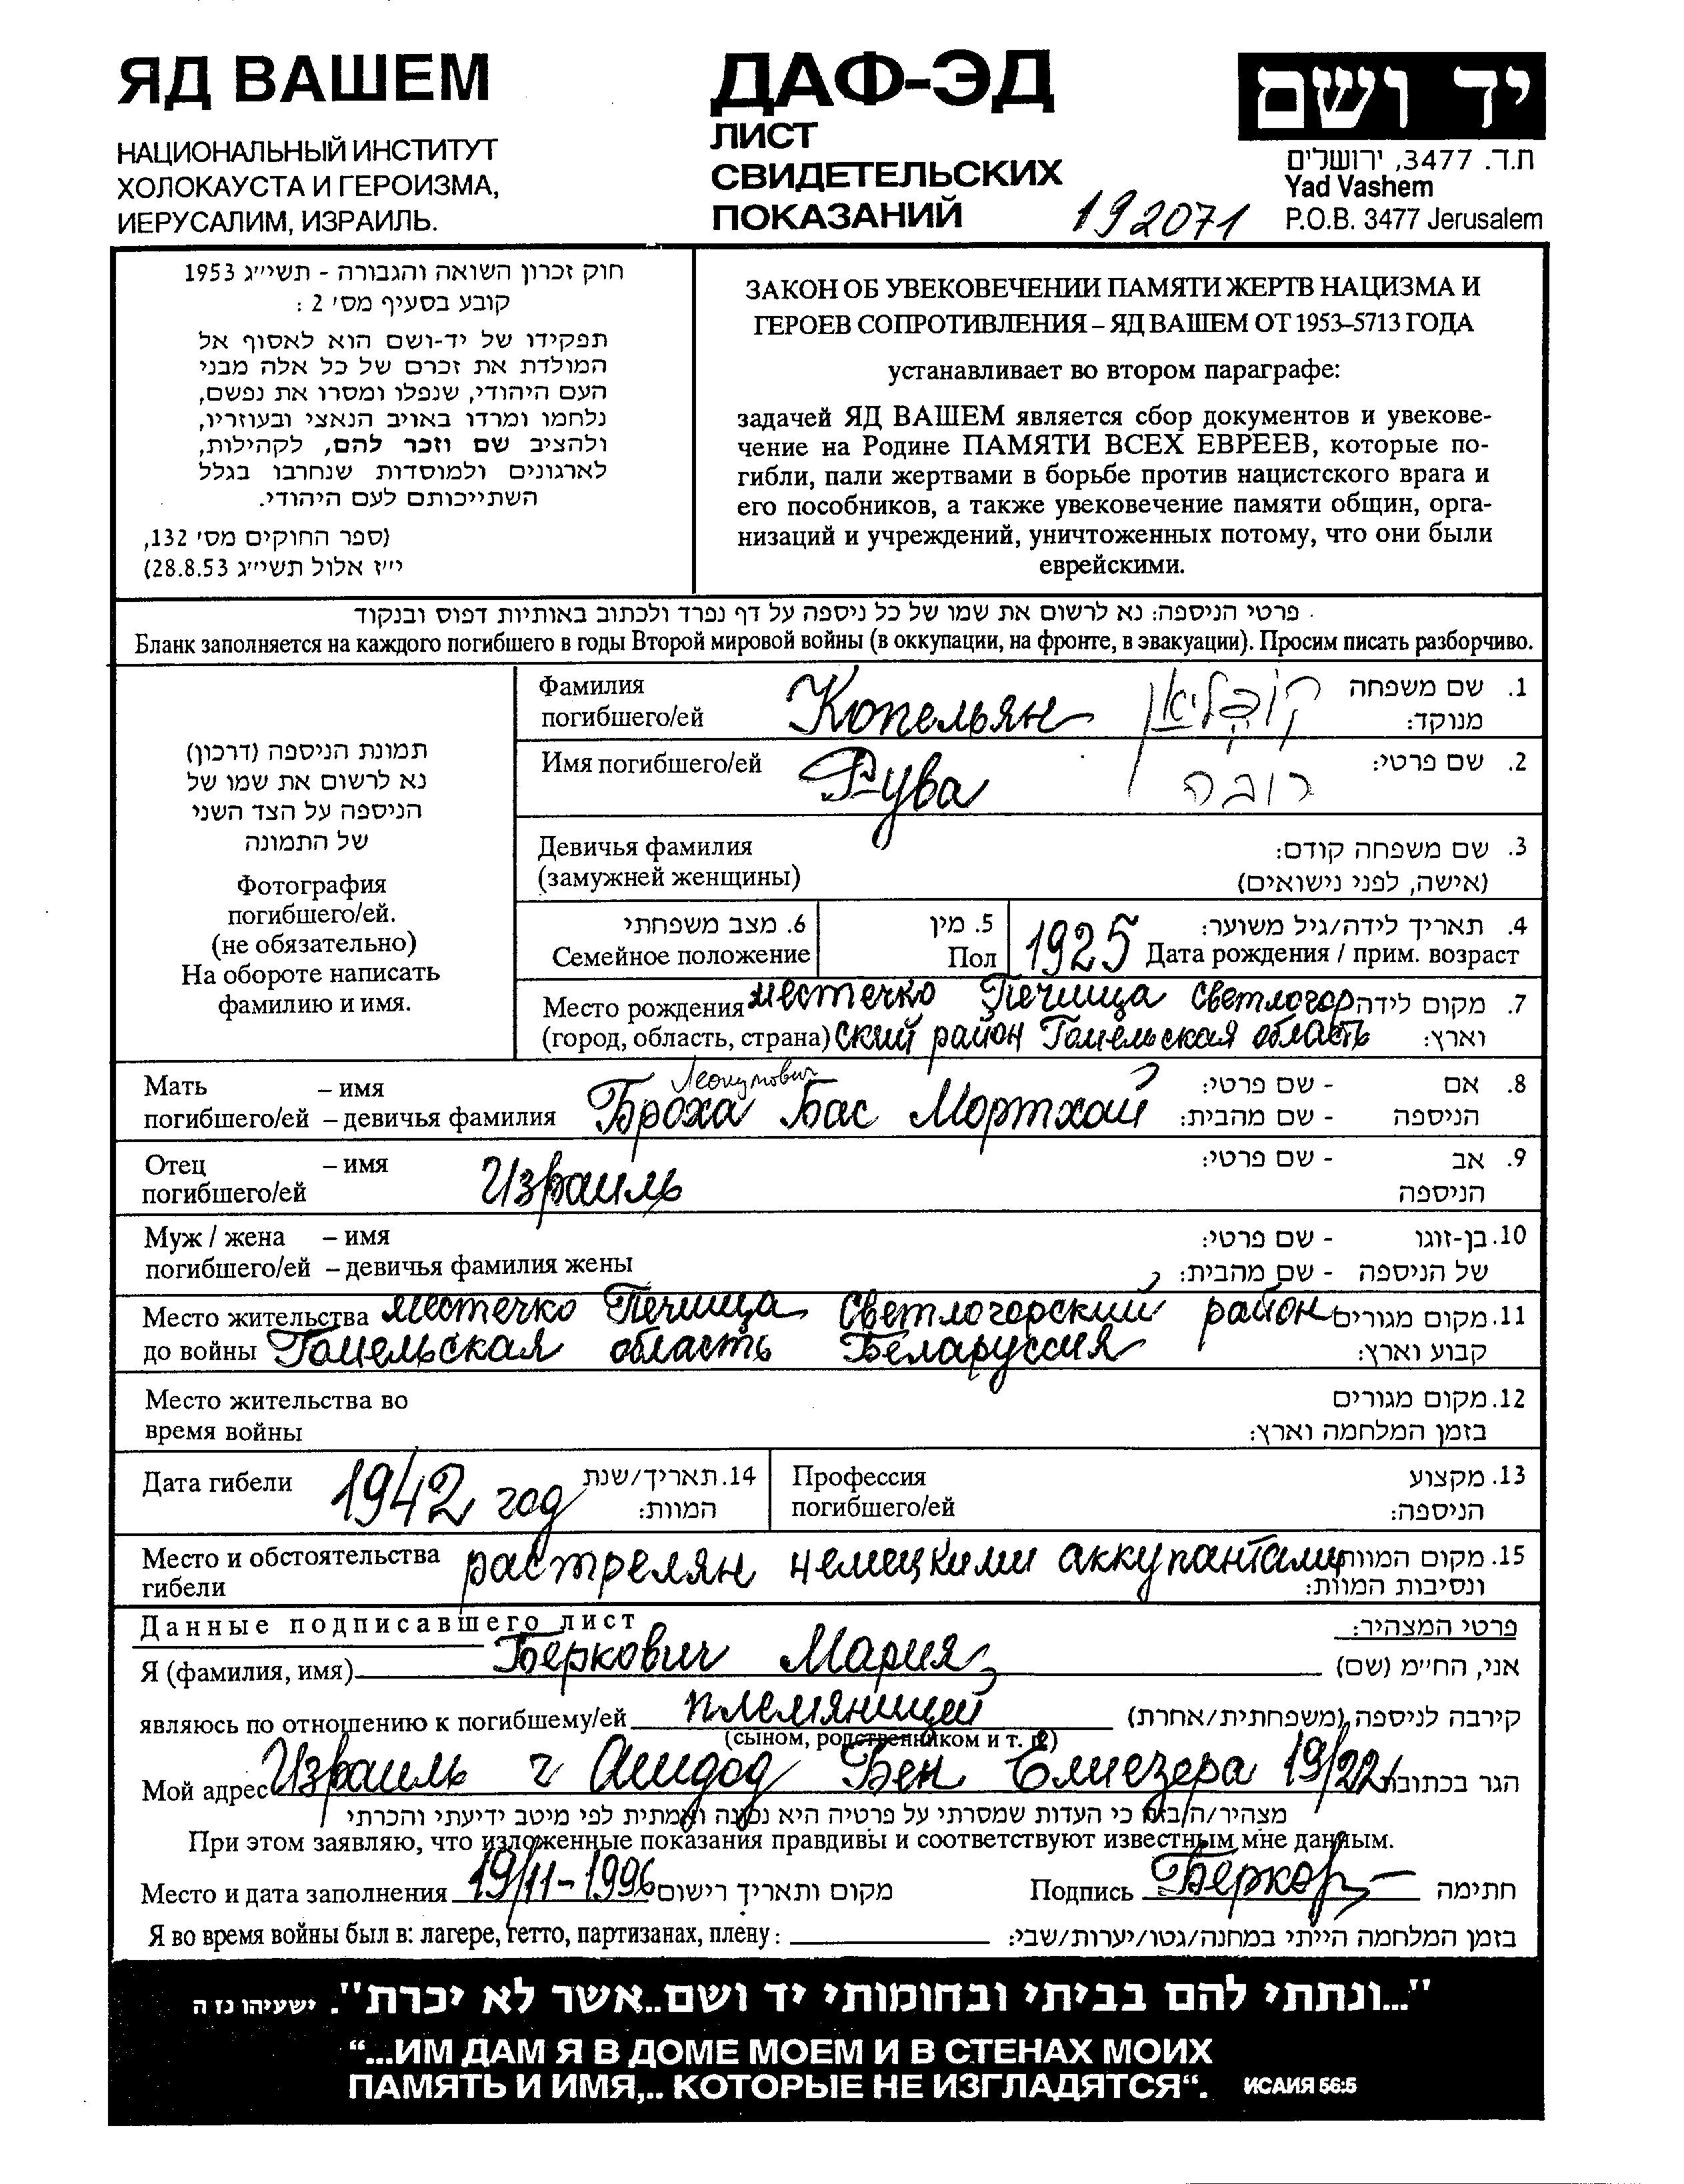 ЯД ВАШЕМ
НАЦИОНАЛЬНЫЙ ИНСТИТУТ
ХОЛОКАУСТА И ГЕРОИЗМА,
ИЕРУСАЛИМ, ИЗРАИЛЬ.
ДАФ-ЭД
ЛИСТ
СВИДЕТЕЛЬСКИХ
ПОКАЗАНИЙ
192071
יד ושם
ת.ד. 3477, ירושלים
Yad Vashem
P.O.B. 3477 Jerusalem
חוק זכרון השואה והגבורה - תשי״ג 1953
קובע בסעיף מס׳ 2 :
תפקידו של יד-ושם הוא לאסוף אל
המולדת את זכרם של כל אלה מבני
העם היהודי, שנפלו ומסרו את נפשם,
נלחמו ומרדו באויב הנאצי ובעוזריו,
ולהציב שם וזכר להם, לקהילות,
לארגונים ולמוסדות שנחרבו בגלל
השתייכותם לעם היהודי.
(ספר החוקים מס׳ 132,
י״ז אלול תשי״ג 28.8.53)
ЗАКОН ОБ УВЕКОВЕЧЕНИИ ПАМЯТИ ЖЕРТВ НАЦИЗМА И
ГЕРОЕВ СОПРОТИВЛЕНИЯ – ЯД ВАШЕМ ОТ 1953–5713 ГОДА
устанавливает во втором параграфе:
задачей ЯД ВАШЕМ является сбор документов и увекове-
чение на Родине ПАМЯТИ ВСЕХ ЕВРЕЕВ, которые по-
гибли, пали жертвами в борьбе против нацистского врага и
его пособников, а также увековечение памяти общин, орга-
низаций и учреждений, уничтоженных потому, что они были
еврейскими.
פרטי הניספה: נא לרשום את שמו של כל ניספה על דף נפרד ולכתוב באותיות דפוס ובנקוד
Бланк заполняется на каждого погибшего в годы Второй мировой войны (в оккупации, на фронте, в эвакуации). Просим писать разборчиво.
תמונת הניספה (דרכון)
נא לרשום את שמו של
הניספה על הצד השני
של התמונה
Фотография
погибшего/ей.
(не обязательно)
На обороте написать
фамилию и имя.
Фамилия Копельян קופליאן 1. שם משפחה
погибшего/ей מנוקד:
Имя погибшего/ей Рува רובה 2. שם פרטי:
Девичья фамилия 3. שם משפחה קודם:
(замужней женщины) (אישה, לפני נישואים)
6. מצב משפחתי 5. מין 1925 4. תאריך לידה/גיל משוער:
Семейное положение Пол Дата рождения / прим. возраст
Место рождения местечко Печища Светлогор 7. מקום לידה
(город, область, страна) ский район Гомельская область וארץ:
Мать – имя 8. אם - שם פרטי:
погибшего/ей – девичья фамилия Броха Бас Мортхай הניספה - שם מהבית:
Отец – имя Израиль 9. אב - שם פרטי:
погибшего/ей הניספה
Муж / жена – имя 10. בן-זוגו - שם פרטי:
погибшего/ей – девичья фамилия жены של הניספה - שם מהבית:
Место жительства местечко Печища Светлогорский район 11. מקום מגורים
до войны Гомельская область Беларуссия קבוע וארץ:
Место жительства во 12. מקום מגורים
время войны בזמן המלחמה וארץ:
Дата гибели 1942 год 14. תאריך/שנת המוות: Профессия 13. מקצוע
погибшего/ей הניספה:
Место и обстоятельства растрелян немецкими аккупантами 15. מקום המוות
гибели ונסיבות המוות:
Данные подписавшего лист פרטי המצהיר:
Я (фамилия, имя) Беркович Мария אני, החי״מ (שם)
являюсь по отношению к погибшему/ей племяницей קירבה לניספה (משפחתית/אחרת)
(сыном, родственником и т. д.)
Мой адрес Израиль г Ашдод Бен Елиезера 19/22 הגר בכתובת
מצהיר/ה בזה כי העדות שמסרתי על פרטיה היא נכונה ואמתית לפי מיטב ידיעתי והכרתי
При этом заявляю, что изложенные показания правдивы и соответствуют известным мне данным.
Место и дата заполнения 19/11-1996 מקום ותאריך רישום Подпись Берков חתימה
Я во время войны был в: лагере, гетто, партизанах, плену: בזמן המלחמה הייתי במחנה/גטו/יערות/שבי:
"...ונתתי להם בביתי ובחומותי יד ושם..אשר לא יכרת". ישעיהו נז ה
“...ИМ ДАМ Я В ДОМЕ МОЕМ И В СТЕНАХ МОИХ
ПАМЯТЬ И ИМЯ,.. КОТОРЫЕ НЕ ИЗГЛАДЯТСЯ“. ИСАИЯ 56:5